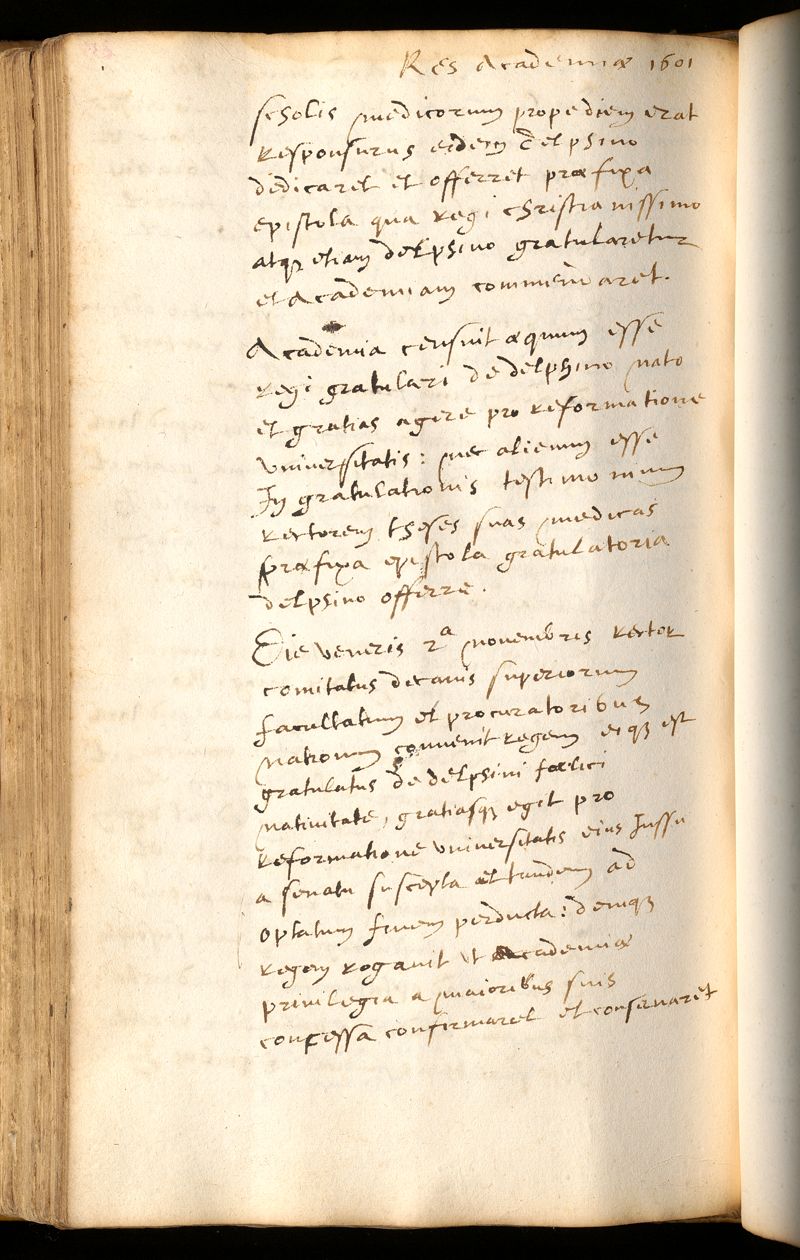 Res Academiæ 1601
scholis medicorum propediem erat
responsurus eidem delphino
dedicaret et offerret præfixa
epistola qua regi christianissimo
atque etiam delphino gratularetur
et Academiam commendaret.
Academia censuit æquum esse
regi gratulari de delphino nato
et gratias agere pro reformatione
universitatis: nec alienum esse
In gratulationis testimonium
rectorem theses suas medicas
præfixa epistola gratulatoria
delphino offerre.
Die veneris 2a novembris rector
comitatus decanis superiorum
facultatum et procuratoribus
nationum convenit regem eique est
gratulatus de delphini fœlici
nativitate, gratiasque egit pro
reformatione universitatis eius Jussu
a senatu suscepta et tandem ad
optatum finem perducta: denique
regem rogavit ut Academiæ
privilegia a maioribus suis
concessa confirmaret et conservaret